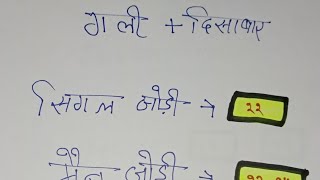 गली + दिसावर
सिंगल जोड़ी → २२
मैन जोड़ी →